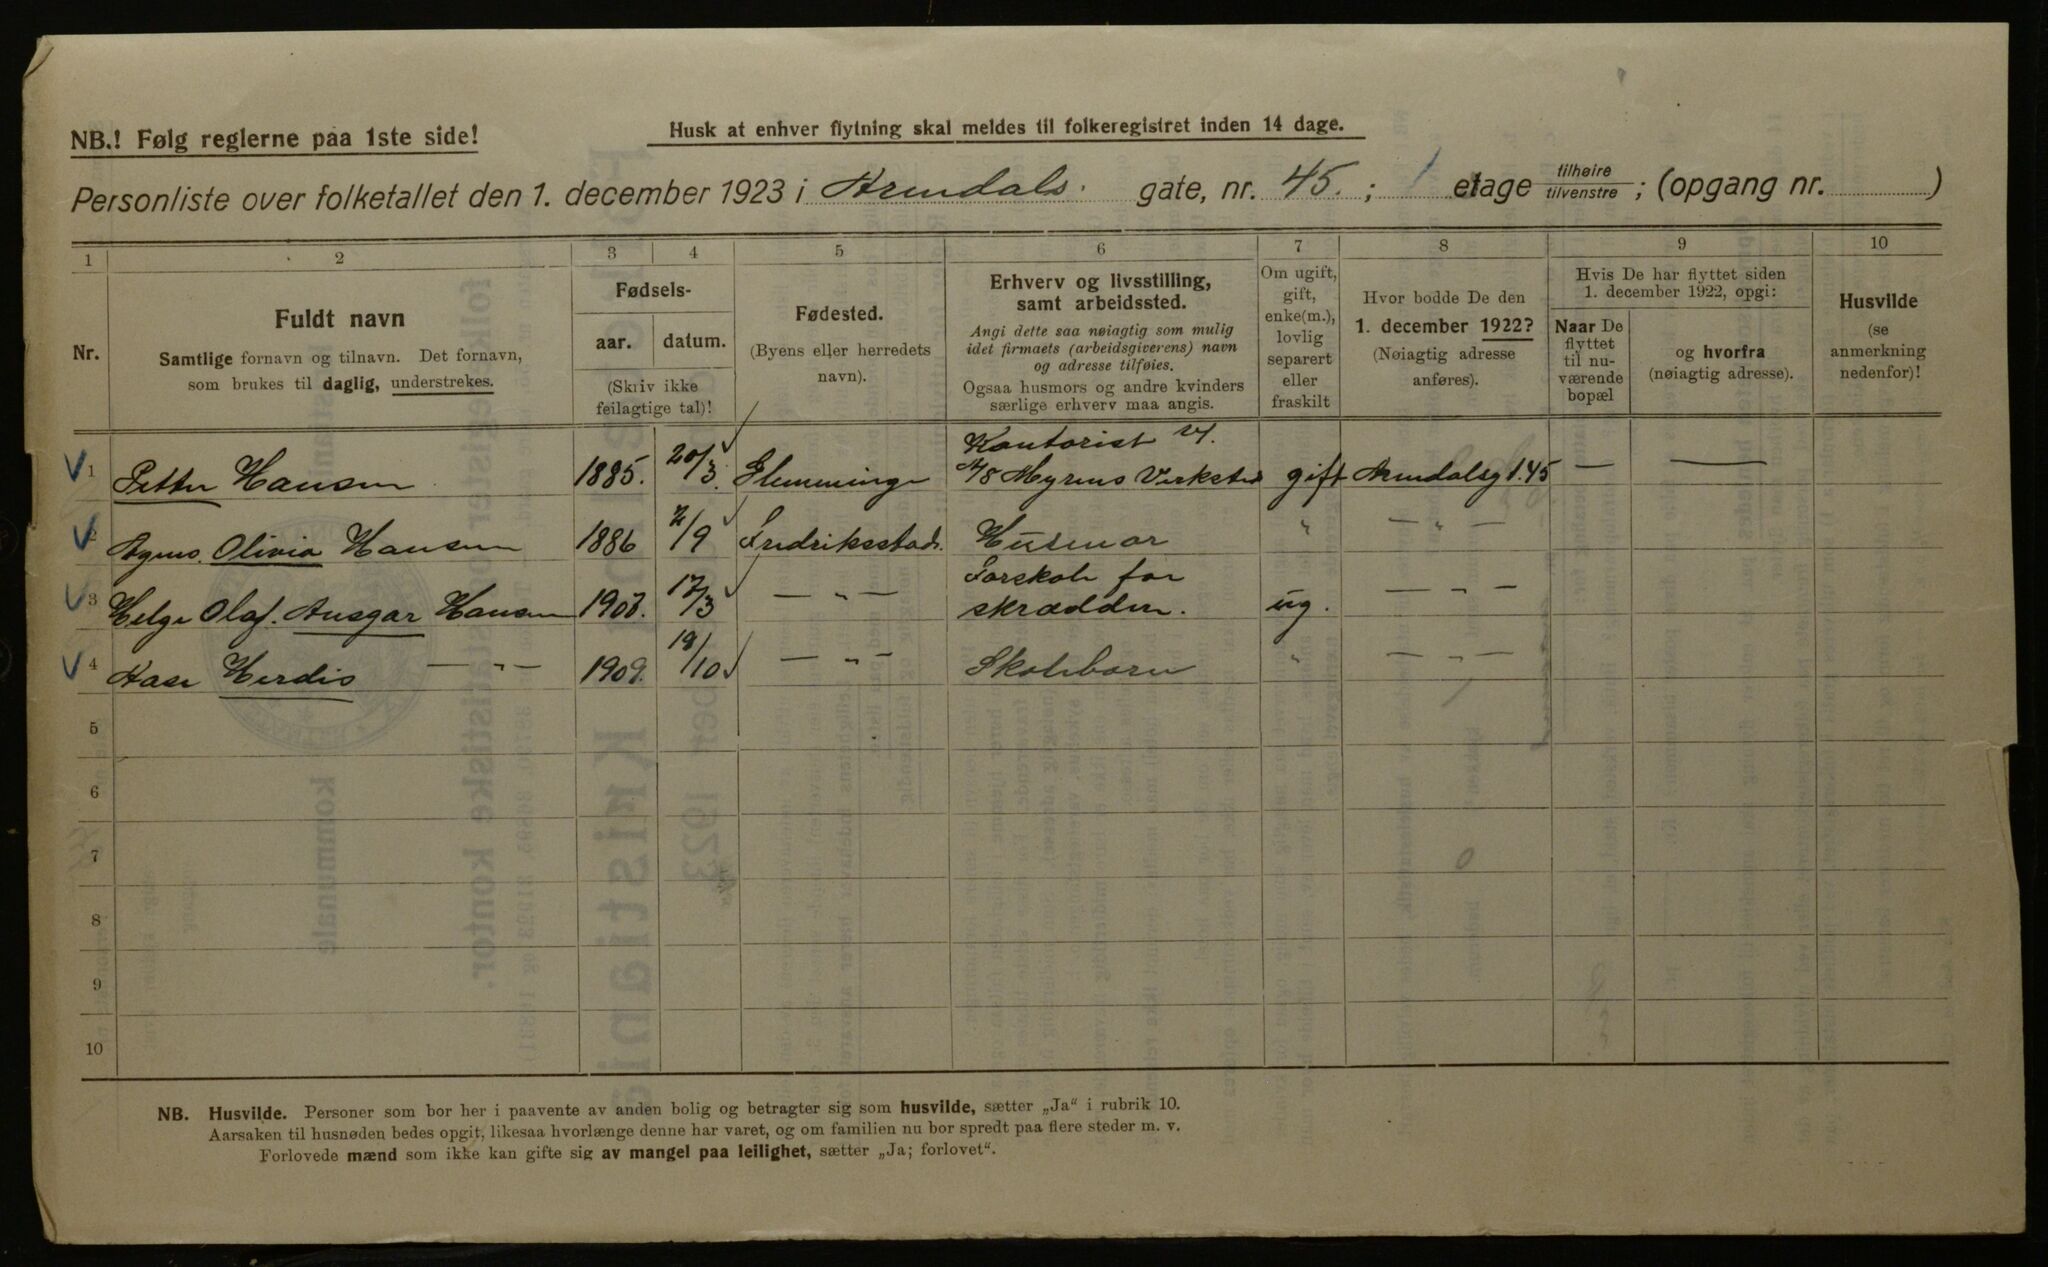 NB.! Følg reglerne paa 1ste side!
Husk at enhver flytning skal meldes til folkeregistret inden 14 dage.
Personliste over folketallet den 1. december 1923 i Arendals. gate, nr. 45. ; 1 etage tilhøire / tilvenstre ; (opgang nr. )
1 2 3 4 5 6 7 8 9 10
Nr.
Fuldt navn
Samtlige fornavn og tilnavn. Det fornavn,
som brukes til daglig, understrekes.
Fødsels-
aar. datum.
(Skriv ikke
feilagtige tal)!
Fødested.
(Byens eller herredets
navn).
Erhverv og livsstilling,
samt arbeidssted.
Angi dette saa nøiagtig som mulig
idet firmaets (arbeidsgiverens) navn
og adresse tilføies.
Ogsaa husmors og andre kvinders
særlige erhverv maa angis.
Om ugift,
gift,
enke(m.),
lovlig
separert
eller
fraskilt
Hvor bodde De den
1. december 1922?
(Nøiagtig adresse
anføres).
Hvis De har flyttet siden
1. december 1922, opgi:
Naar De
flyttet
til nu-
værende
bopæl
og hvorfra
(nøiagtig adresse).
Husvilde
(se
anmerkning
nedenfor)!
Kontorist v.
1 Petter Hansen 1885. 20/3 Glemminge A/S Myrens Verksted gift Arendalsg t. 45 — —
2 Agnes Olivia Hansen 1886 2/9 Fredriksstad. Husmor " — " —
Forskole for
3 Helge Olaf. Ansgar Hansen 17/3 — " — skræddere. ug. — " —
4 Aase Herdis — " — 1909. 19/10 — " — Skolebarn " — " —
5
6
7
8
9
10
NB. Husvilde. Personer som bor her i paavente av anden bolig og betragter sig som husvilde, sætter „Ja“ i rubrik 10.
Aarsaken til husnøden bedes opgit, likesaa hvorlænge denne har varet, og om familien nu bor spredt paa flere steder m. v.
Forlovede mænd som ikke kan gifte sig av mangel paa leilighet, sætter „Ja; forlovet“.